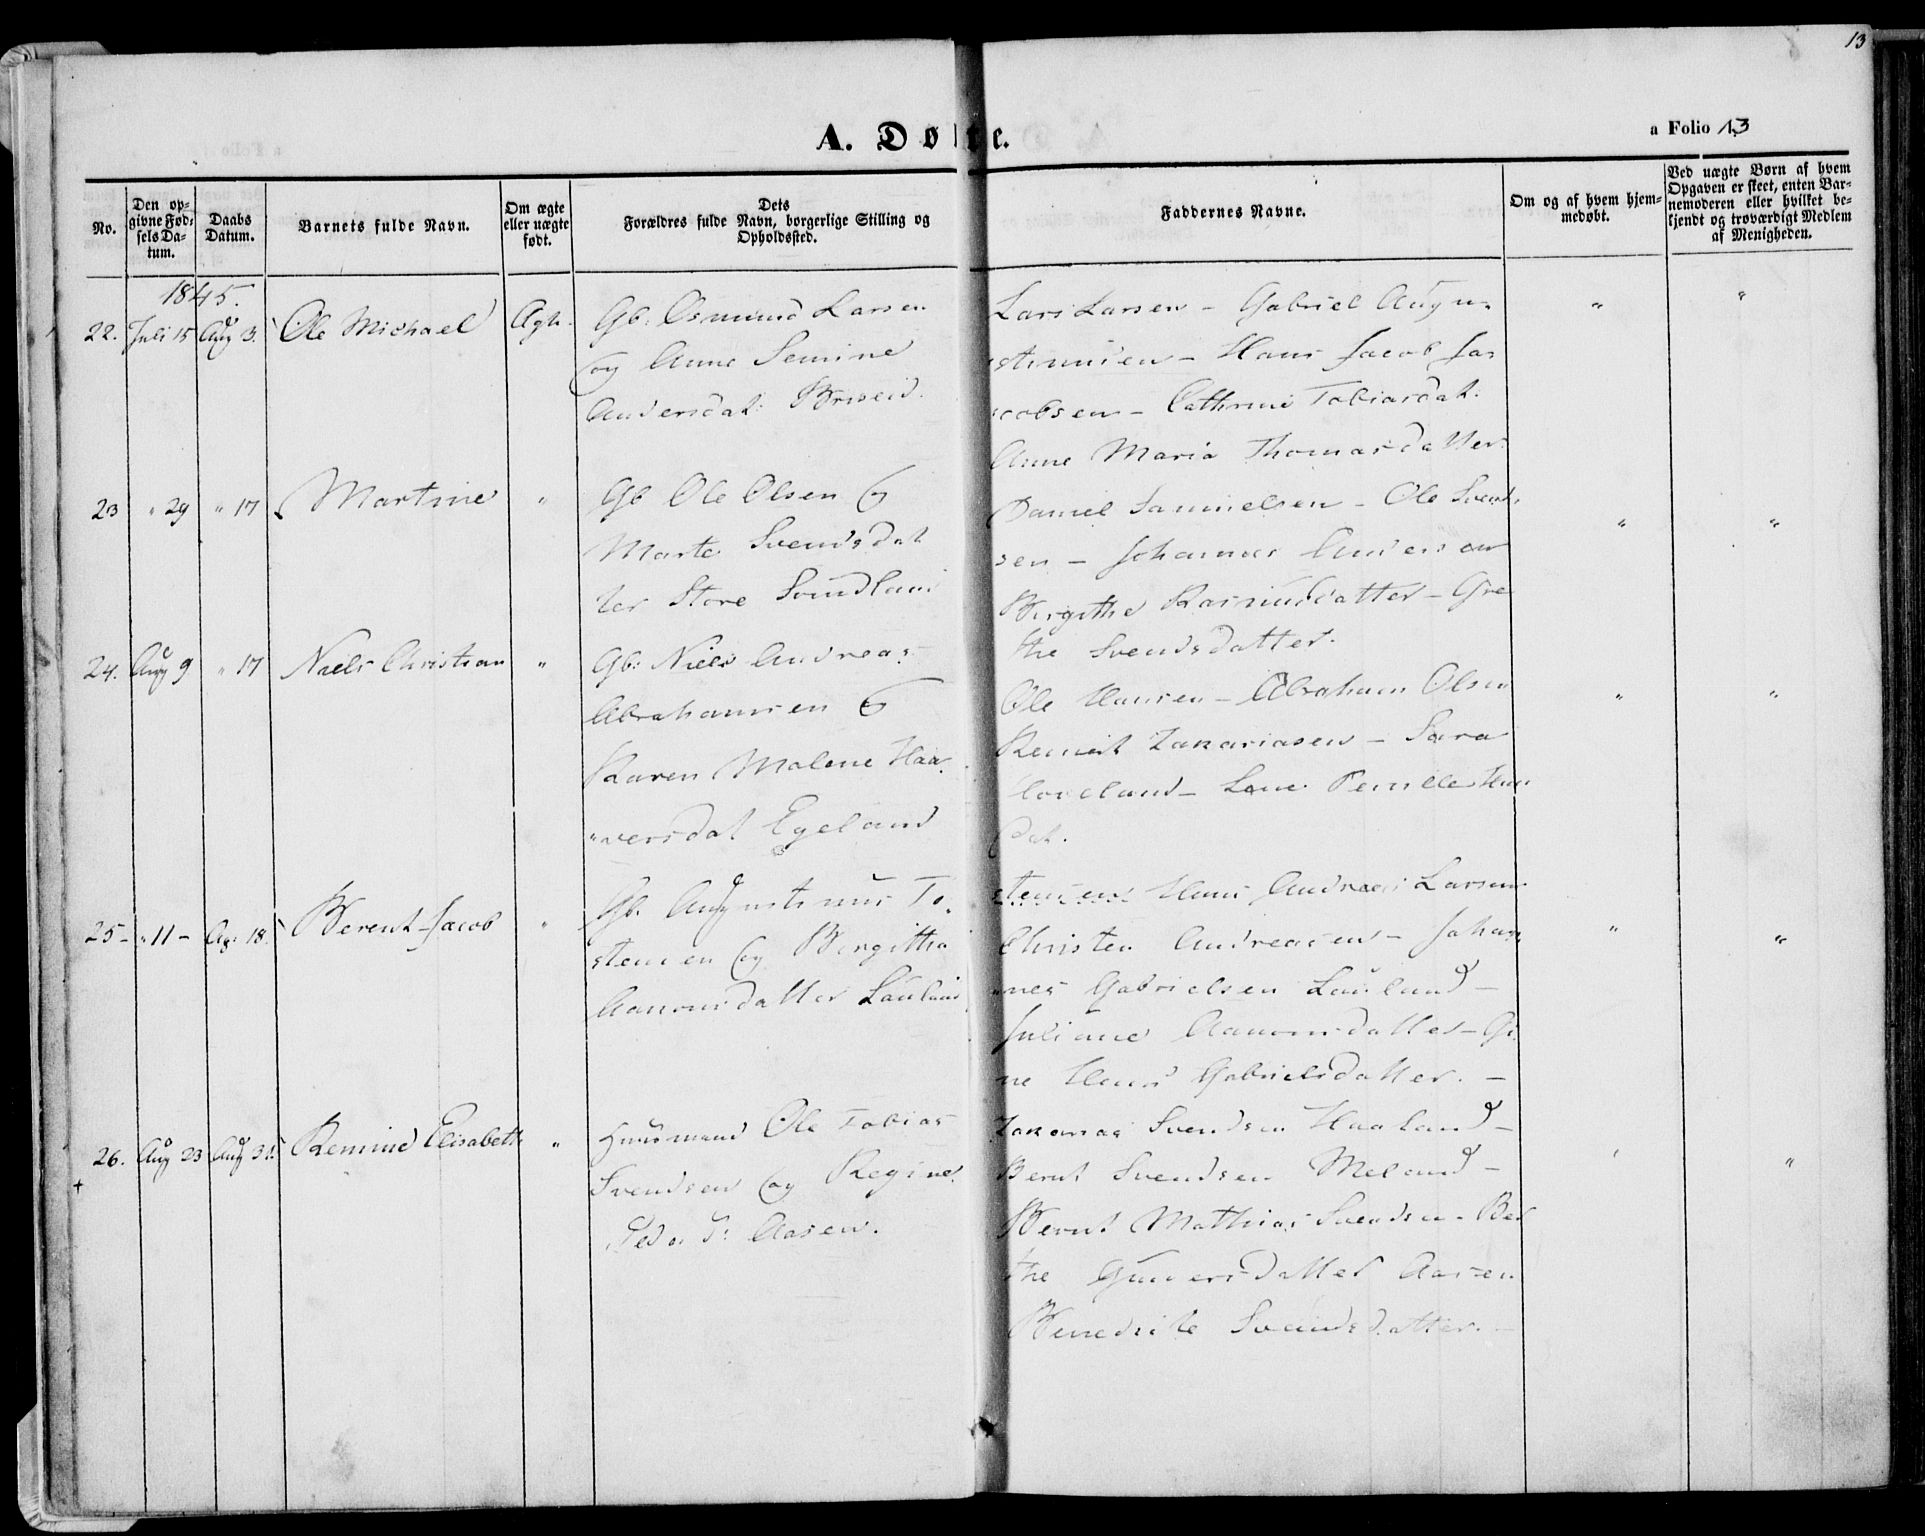 13
A. Døbte.
a Folio 13
No.
Den op-
givne Fød-
sels Da-
tum.
Daabs
Datum.
Barnets fulde Navn.
Om ægte
eller uægte
født.
Dets
Forældres fulde Navn, borgerlige Stilling og
Opholdssted.
Faddernes Navne.
Om og af hvem hjem-
medøbt.
Ved uægte Børn af hvem
Opgaven er skeet, enten Bar-
nemoderen eller hvilket be-
kjendt og troværdigt Medlem
af Menigheden.
1845.
22. Juli 15 Aug 3. Ole Michael Ægte
Gb: Osmund Larsen
og Anne Semine
Andersdat:
Lars Larsen - Gabriel Augu-
stinusen - Hans Jacob Ja-
cobsen - Cathrine Tobiasdat.
Anne Maria Thomasdatter.
23 " 29 " 17 Martine "
Gb Ole Olsen og
Marte Svendsdat
ter Store Svindland
Daniel Samuelsen - Ole Svend-
sen - Johannes Andersen
Birgithe Rasmusdatter - Gre
the Svendsdatter.
24. Aug 9 " 17 Niels Christian "
Gb: Niels Andreas
Abrahamsen og
Karen Malene Haa-
versdat Egeland
Ole Hansen - Abraham Olsen
Zakariasen - Sara
- Lene Pernille
dat.
25 - " 11 - Ag: 18. Berent Jacob "
Gb. Augustinus To-
stensen og Birgitha
Aanonsdatter Lauland
stensen Hans Andreas Larsen
Christen Andreasen - Johan-
nes Gabrielsen Lauland -
Juliane Aanonsdatter - Gu
ne Hans Gabrielsdatter. -
26. Aug 23 Aug 31. Remine Elisabeth "
Huusmand Ole Tobias
Svendsen og Regine
Pedr. D: Aasen.
Zakarias Svendsen Haaland -
Bernt Svendsen Meland -
Bernt Mathias Svendsen - Ber
the Gunersdatter Aasen
Benedicte Svendsdatter. -